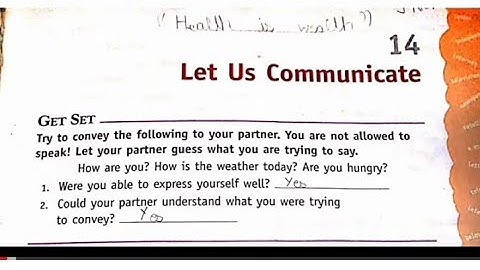 "Health is wealth"
14
Let Us Communicate
GET SET
Try to convey the following to your partner. You are not allowed to
speak! Let your partner guess what you are trying to say.
How are you? How is the weather today? Are you hungry?
1. Were you able to express yourself well? Yes
2. Could your partner understand what you were trying
to convey? Yes